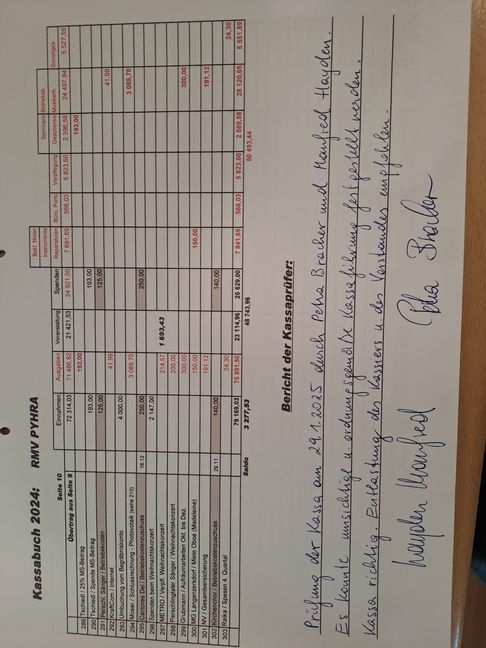 Kassabuch 2024: RMV PYHRA
Bekl. Noten Seminare Betriebsk
Seite 10 Instrumente
Einnahmen Ausgaben Veranstaltung Spenden Reparaturen Büro, Porto Verpflegung Geschenke Musikerh. Sonstiges
Übertrag aus Seite 9 72 314,03 71 486,82 21 421,53 24 921,00 7 691,69 566,03 5 823,60 2 396,58 24 497,84 5 527,59
289 Tschiedl / 25% MS-Beitrag 193,00 193,00
290 Tschiedl / Spende MS-Beitrag 193,00 193,00
291 Persschl. Sänger / Betriebskosten 125,00 125,00
292 KraftCom / Internet 41,99 41,99
293 Umbuchung vom Begräbniskonto 4 000,00
294 Moser / Schlussrechnung - Photovoltaik (siehe 210) 3 089,70 3 089,70
295 Betriebskostenzuschuss 16.12 250,00 250,00
296 Spenden beim Weihnachtskonzert 2 147,00
297 METRO / Verpfl. Weihnachtskonzert 214,57 1 693,43
298 Perschlingtaler Sänger / Weihnachtskonzert 200,00
299 Grubmann / Aufräumarbeiten Okt. bis Dez 300,00 300,00
300 MG Langenzersdorf / Miete Oboe (Madeleine) 150,00 150,00
301 NV / Gesamtversicherung 191,12 191,12
302 Kirchenchor / Betriebskostenzuschuss 29.11 140,00 140,00
303 Raika / Spesen 4. Quartal 24,30 24,30
79 169,03 75 891,50 23 114,96 25 629,00 7 841,69 566,03 5 823,60 2 589,58 28 120,65 5 551,89
Saldo 3 277,53 48 743,96 50 493,44
Bericht der Kassaprüfer:
Prüfung der Kassa am 29.1.2025 durch Petra Bracher und Manfred Hayden.
Es konnte umsichtige u. ordnungsgemäße Kassaführung festgestellt werden.
Kassa richtig. Entlastung des Kassiers u. des Vorstandes empfohlen.
Hayden Manfred Petra Bracher